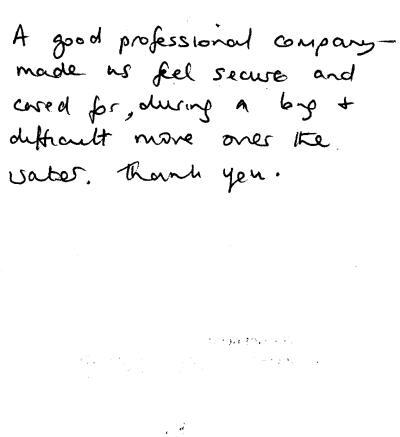 A good professional company –
made us feel secure and
cared for, during a big +
difficult move over the
water. Thank you.